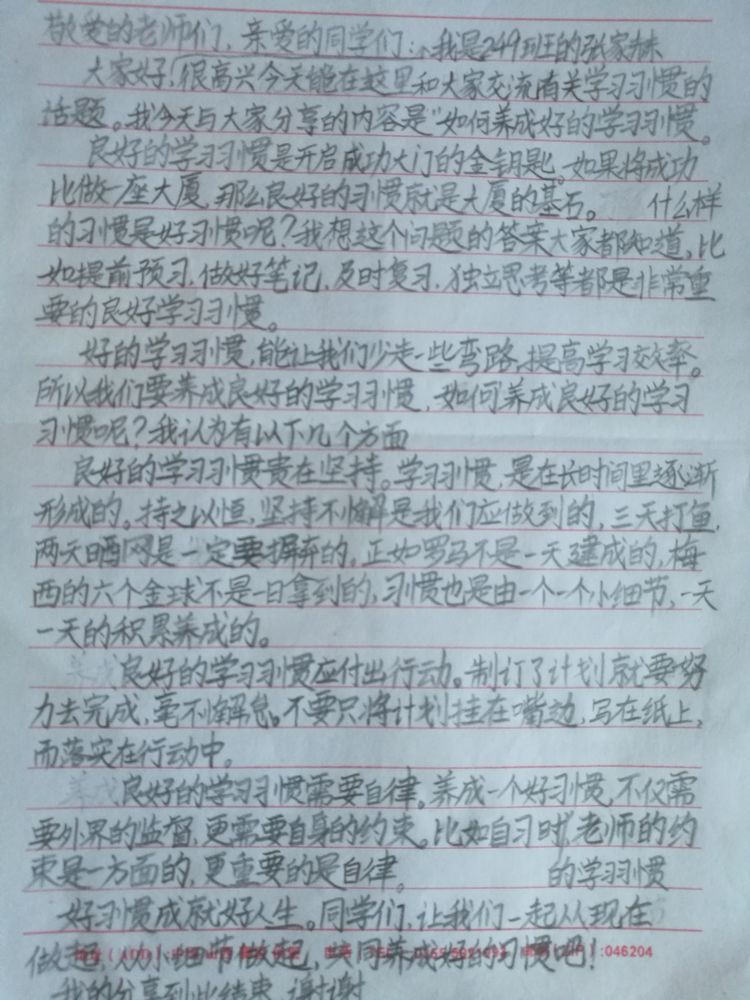 敬爱的老师们，亲爱的同学们：我是249班的张家赫
大家好！很高兴今天能在这里和大家交流有关学习习惯的
话题。我今天与大家分享的内容是"如何养成好的学习习惯。
良好的学习习惯是开启成功大门的金钥匙。如果将成功
比做一座大厦，那么良好的习惯就是大厦的基石。 什么样
的习惯是好习惯呢？我想这个问题的答案大家都知道，比
如提前预习，做好笔记，及时复习，独立思考等都是非常重
要的良好学习习惯。
好的学习习惯，能让我们少走一些弯路，提高学习效率。
所以我们要养成良好的学习习惯，如何养成良好的学习
习惯呢？我认为有以下几个方面
良好的学习习惯贵在坚持。学习习惯，是在长时间里逐渐
形成的。持之以恒，坚持不懈是我们应做到的，三天打鱼，
两天晒网是一定要摒弃的。正如罗马不是一天建成的，梅
西的六个金球不是一日拿到的，习惯也是由一个一个小细节，一天
一天的积累养成的。
养成良好的学习习惯应付出行动。制订了计划就要努
力去完成，毫不懈怠。不要只将计划挂在嘴边，写在纸上，
而落实在行动中。
养成良好的学习习惯需要自律。养成一个好习惯，不仅需
要外界的监督，更需要自身的约束。比如自习时，老师的约
束是一方面的，更重要的是自律。 的学习习惯
好习惯成就好人生。同学们，让我们一起从现在
做起，从小细节做起，共同养成好的习惯吧！
:046204
我的分享到此结束，谢谢